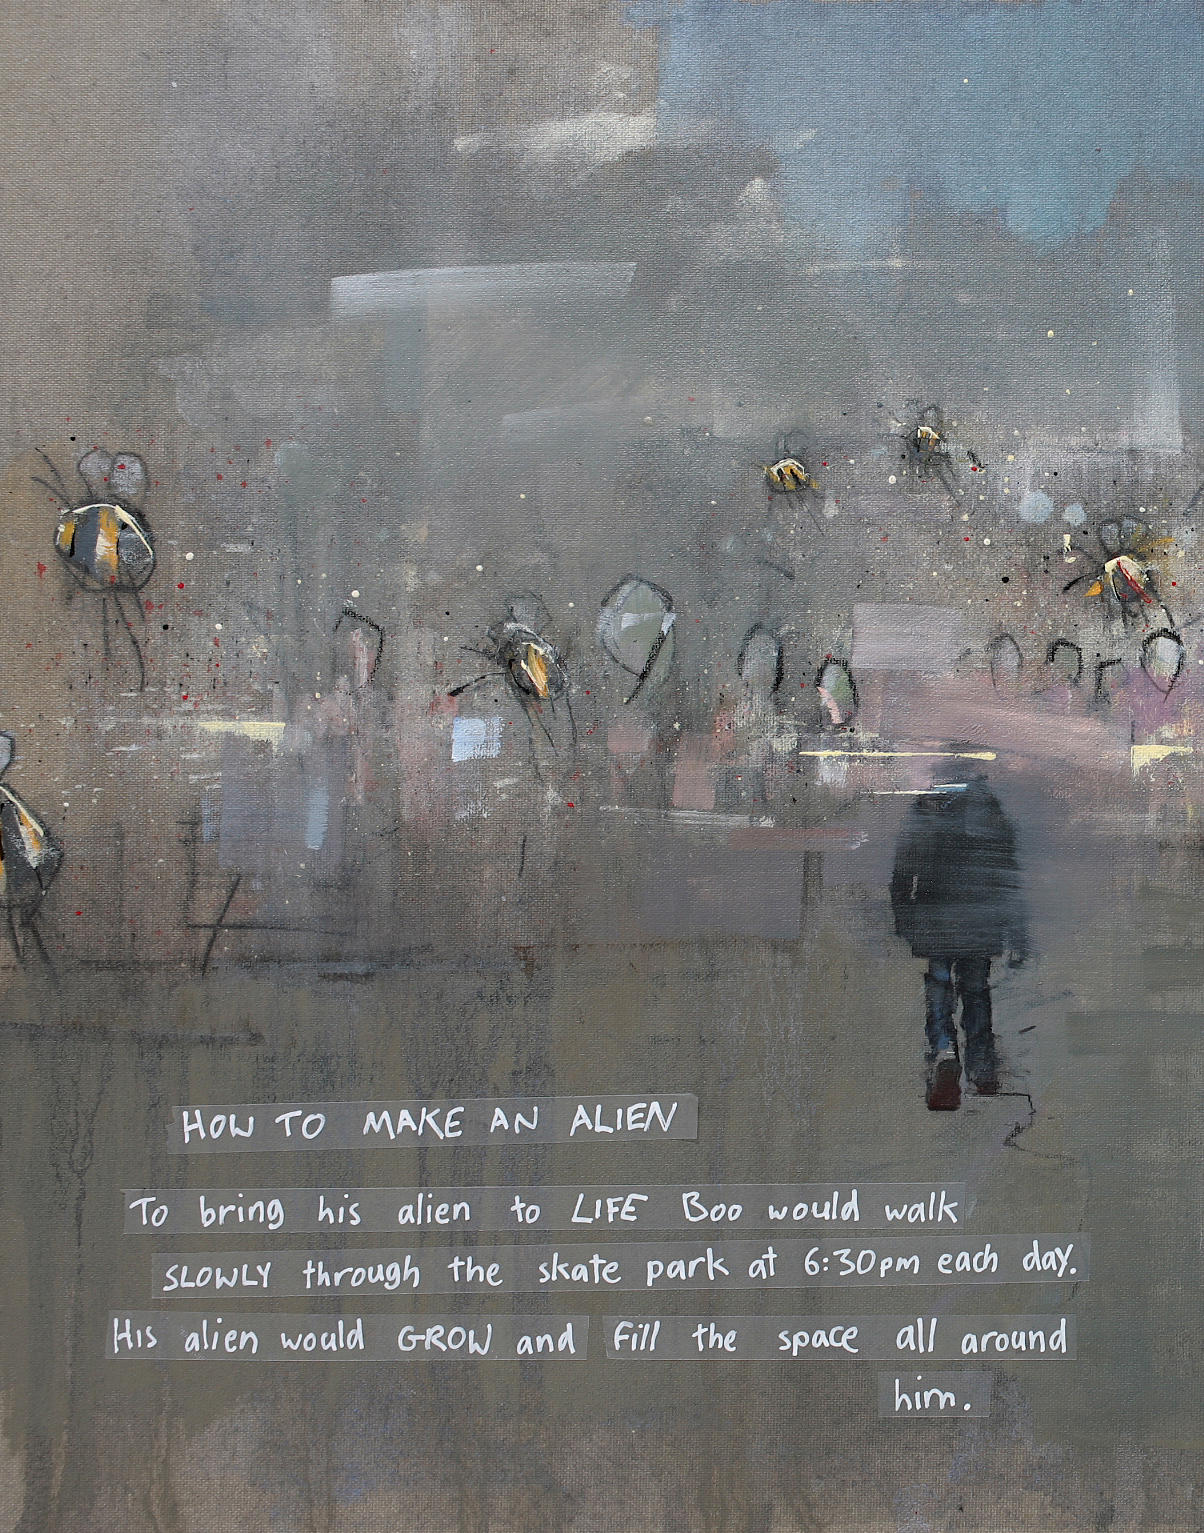 HOW TO MAKE AN ALIEN
To bring his alien to LIFE Boo would walk
SLOWLY through the skate park at 6:30pm each day.
His alien would GROW and fill the space all around
him.